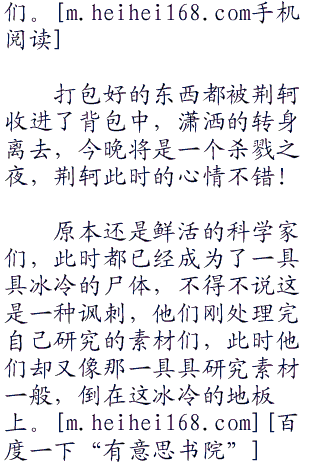 们。[m.heihei168.com手机
阅读]
打包好的东西都被荆轲
收进了背包中，潇洒的转身
离去，今晚将是一个杀戮之
夜，荆轲此时的心情不错！
原本还是鲜活的科学家
们，此时都已经成为了一具
具冰冷的尸体，不得不说这
是一种讽刺，他们刚处理完
自己研究的素材们，此时他
们却又像那一具具研究素材
一般，倒在这冰冷的地板
上。[m.heihei168.com][百
度一下“有意思书院”]